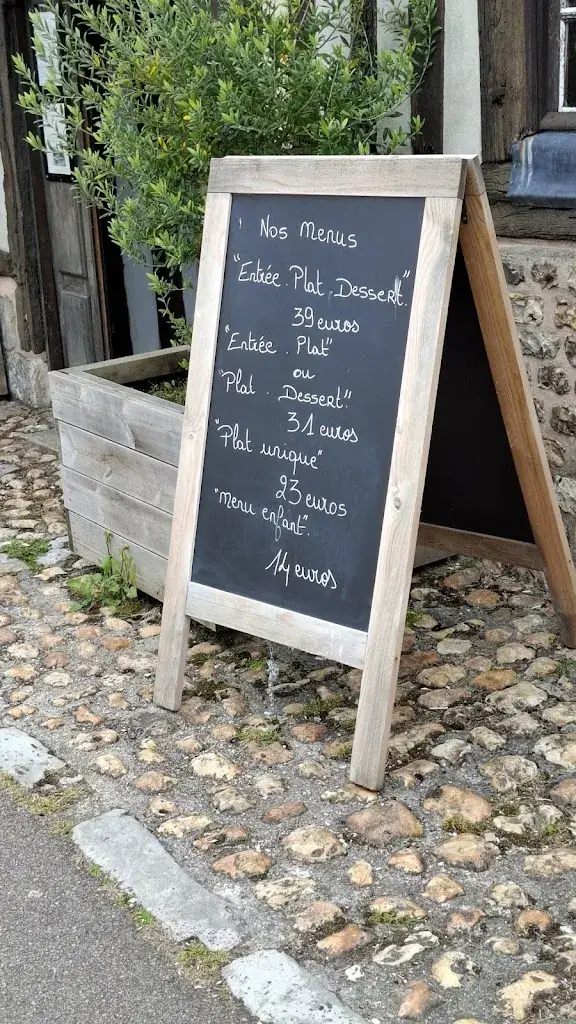 Nos Menus
"Entrée. Plat. Dessert."
39 euros
"Entrée. Plat"
ou
"Plat. Dessert."
31 euros
"Plat unique"
23 euros
"menu enfant".
14 euros